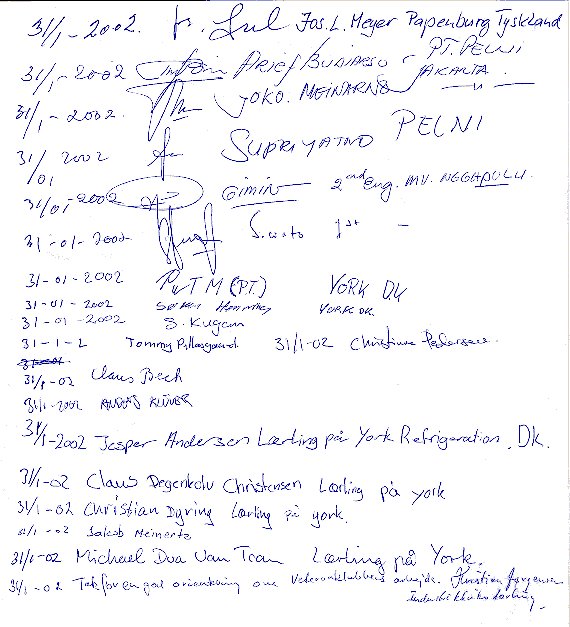 31/1-2002. Jos. L. Meyer Papenburg Tyskland
31/1-2002 Arief Budiarso - PT. PELNI JAKARTA
31/1-2002. JOKO. MEINARNO — " —
31/01 2002 SUPRIYATNO PELNI
31/01-2002 Gimin 2nd Eng. MV. NGGAPULU.
31-01-2002 1st —
31-01-2002 TM (P.T.) YORK DK
31-01-2002 YORK DK
31-01-2002 S. Kugam
31-1-2 Tommy 31/1-02 Christina Pedersen
31/1-02 Claus Bech
31/1-2002
31/1-2002 Jesper Andersen Lærling på York Refrigeration. DK.
31/1-02 Claus Degenkolv Christensen Lærling på York
31/1-02 Christian Dyring Lærling på York.
31/1-02 Jakob Meinertz
31/1-02 Michael Dua Van Tran Lærling på York.
31/1-02 Tak for en god orientering om Veteranklubbens arbejde. Kristian Jørgensen
lærling.